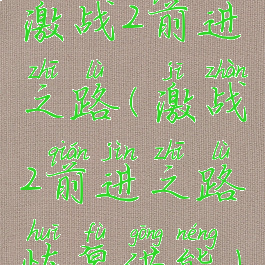 激战2前进
zhī lù jī zhàn
之路(激战
qián jìn zhī lù
2前进之路
huī fù gōng néng
恢复供能)